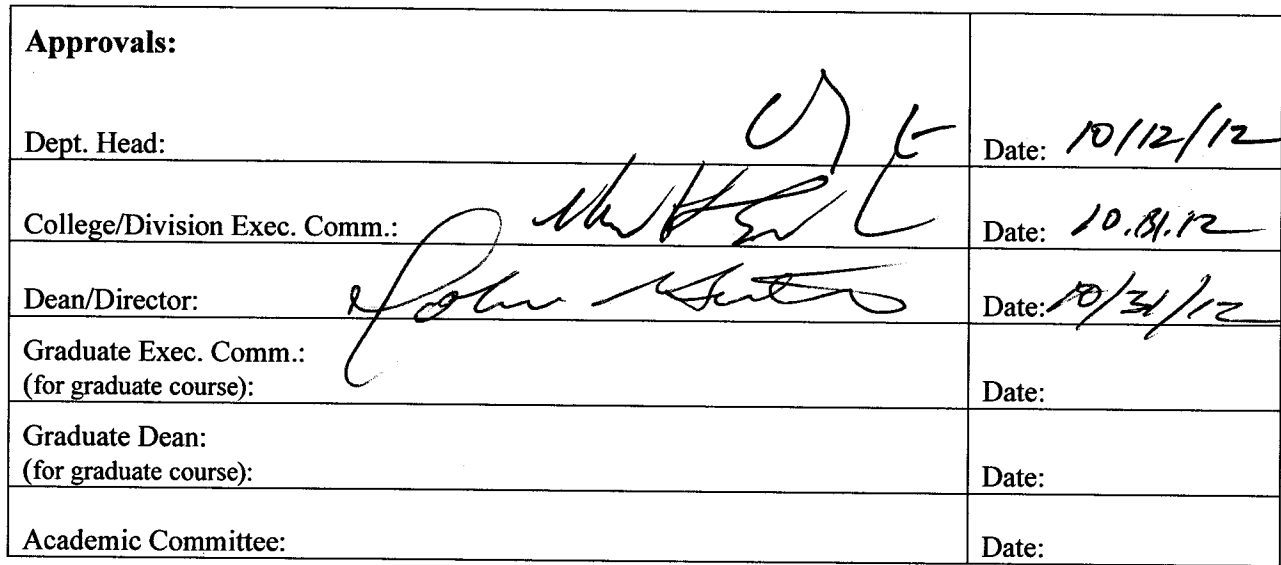 Approvals:
Dept. Head: Date: 10/12/12
College/Division Exec. Comm.: Date: 10.31.12
Dean/Director: Date: 10/31/12
Graduate Exec. Comm.:
(for graduate course): Date:
Graduate Dean:
(for graduate course): Date:
Academic Committee: Date: